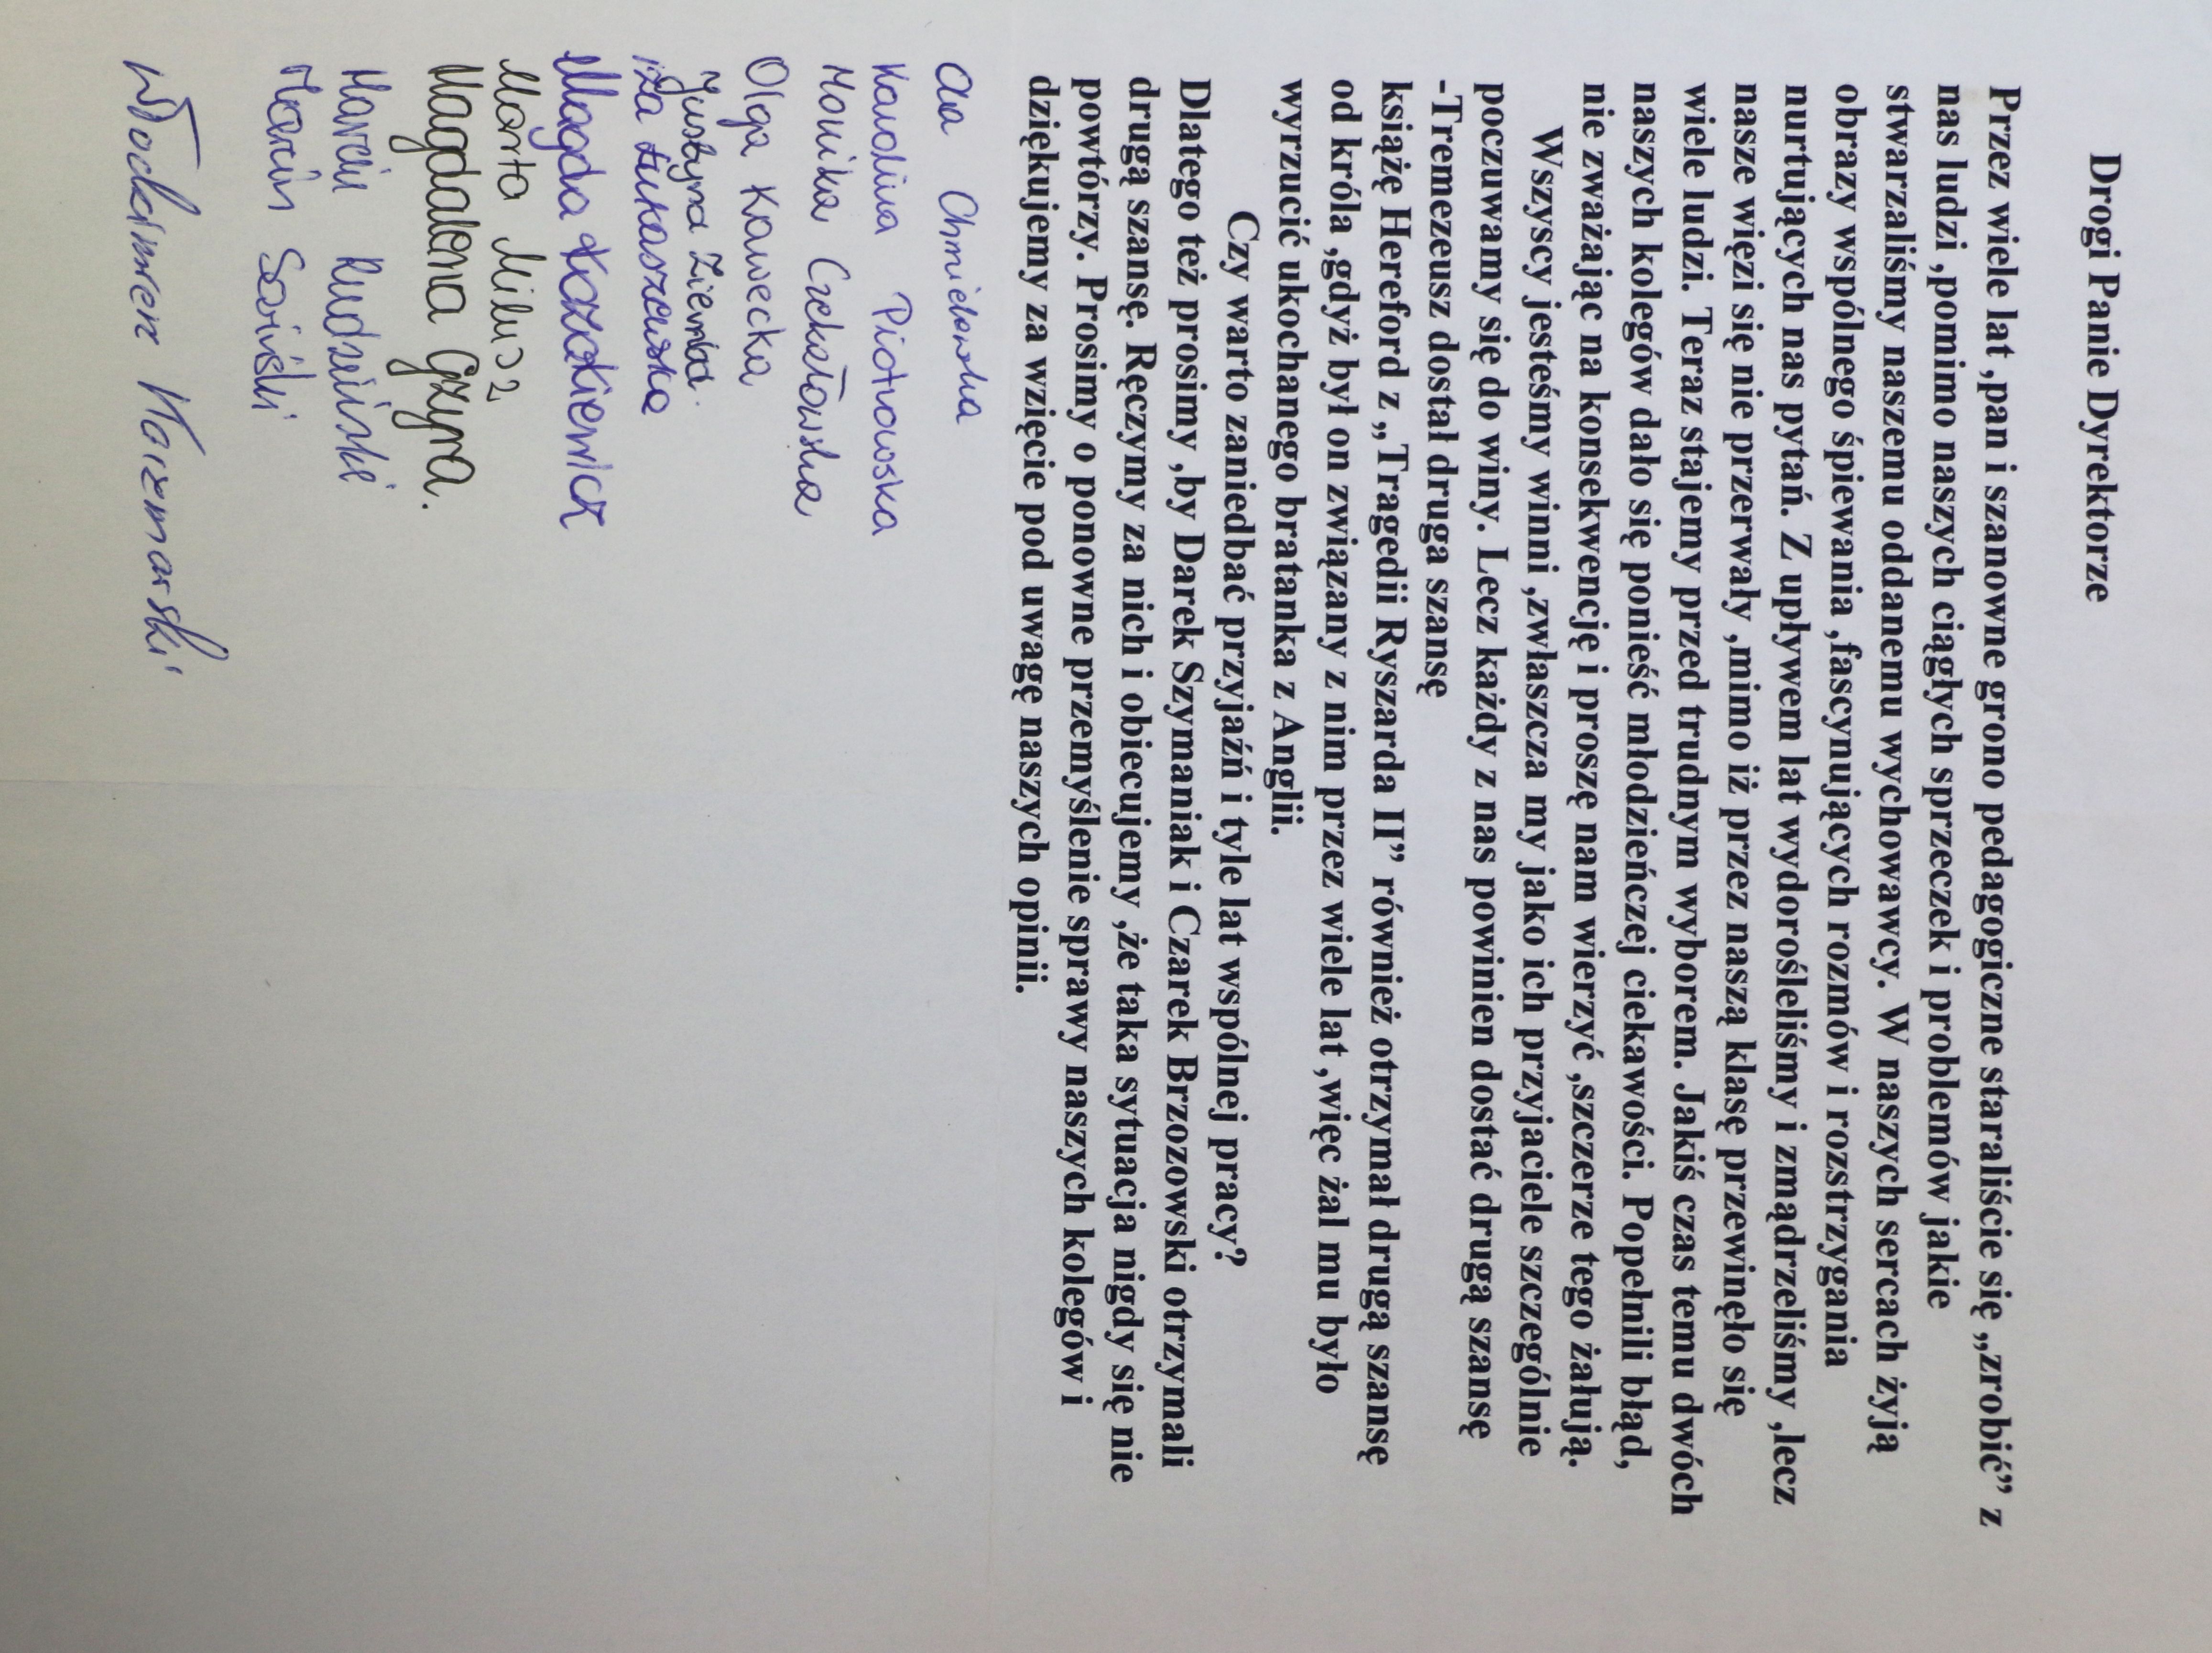 Drogi Panie Dyrektorze
Przez wiele lat ,pan i szanowne grono pedagogiczne staraliście się „zrobić” z
nas ludzi ,pomimo naszych ciągłych sprzeczek i problemów jakie
stwarzaliśmy naszemu oddanemu wychowawcy. W naszych sercach żyją
obrazy wspólnego śpiewania ,fascynujących rozmów i rozstrzygania
nurtujących nas pytań. Z upływem lat wydorośleliśmy i zmądrzeliśmy ,lecz
nasze więzi się nie przerwały ,mimo iż przez naszą klasę przewinęło się
wiele ludzi. Teraz stajemy przed trudnym wyborem. Jakiś czas temu dwóch
naszych kolegów dało się ponieść młodzieńczej ciekawości. Popełnili błąd,
nie zważając na konsekwencję i proszę nam wierzyć ,szczerze tego żałują.
Wszyscy jesteśmy winni ,zwłaszcza my jako ich przyjaciele szczególnie
poczuwamy się do winy. Lecz każdy z nas powinien dostać drugą szansę
-Tremezeusz dostał druga szansę
książę Hereford z „Tragedii Ryszarda II” również otrzymał drugą szansę
od króla ,gdyż był on związany z nim przez wiele lat ,więc żal mu było
wyrzucić ukochanego bratanka z Anglii.
Czy warto zaniedbać przyjaźń i tyle lat wspólnej pracy?
Dlatego też prosimy ,by Darek Szymaniak i Czarek Brzozowski otrzymali
drugą szansę. Ręczymy za nich i obiecujemy ,że taka sytuacja nigdy się nie
powtórzy. Prosimy o ponowne przemyślenie sprawy naszych kolegów i
dziękujemy za wzięcie pod uwagę naszych opinii.
Ola Chmielewska
Karolina Piotrowska
Monika
Olga Kawecka
Justyna Ziemba.
Iza Łukaszewska
Magda
Marta
Magdalena Gzyra.
Marcin Rudziński
Marcin
Włodzimierz Kaczmarski